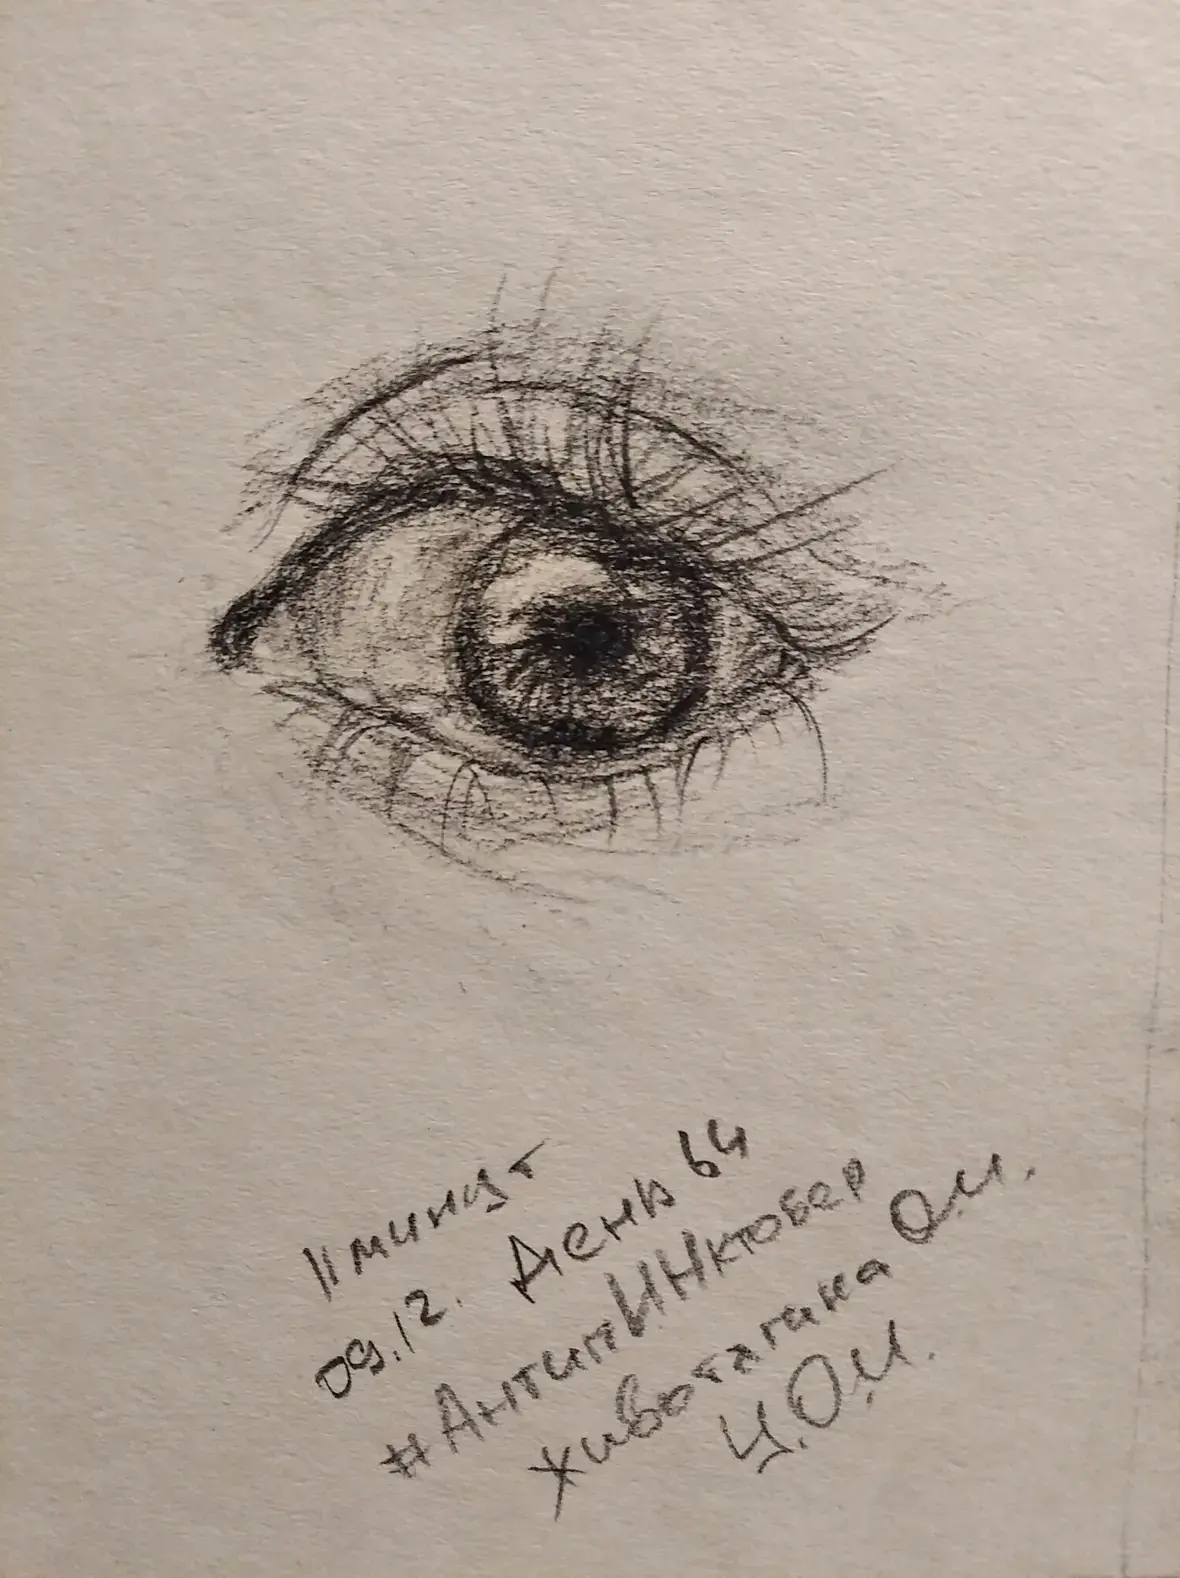 11 минут
09.12. День 64
#АнтипИНктобер
Животягина О.И.
Ц.О.И.